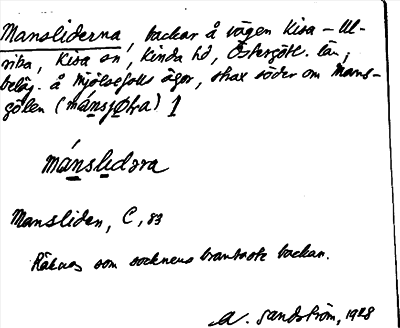 Mansliderna, backar å vägen Kisa – Ul-
rika, Kisa sn, Kinda hd, Östergötl. län,
beläg. å Mjölsefalls ägor, strax söder om Mans-
gölen (mánsjøḷra) ]
mánslidəra
Mansliden, C, 83
Räknas som socknens brantaste backar.
A. Sandström, 1928